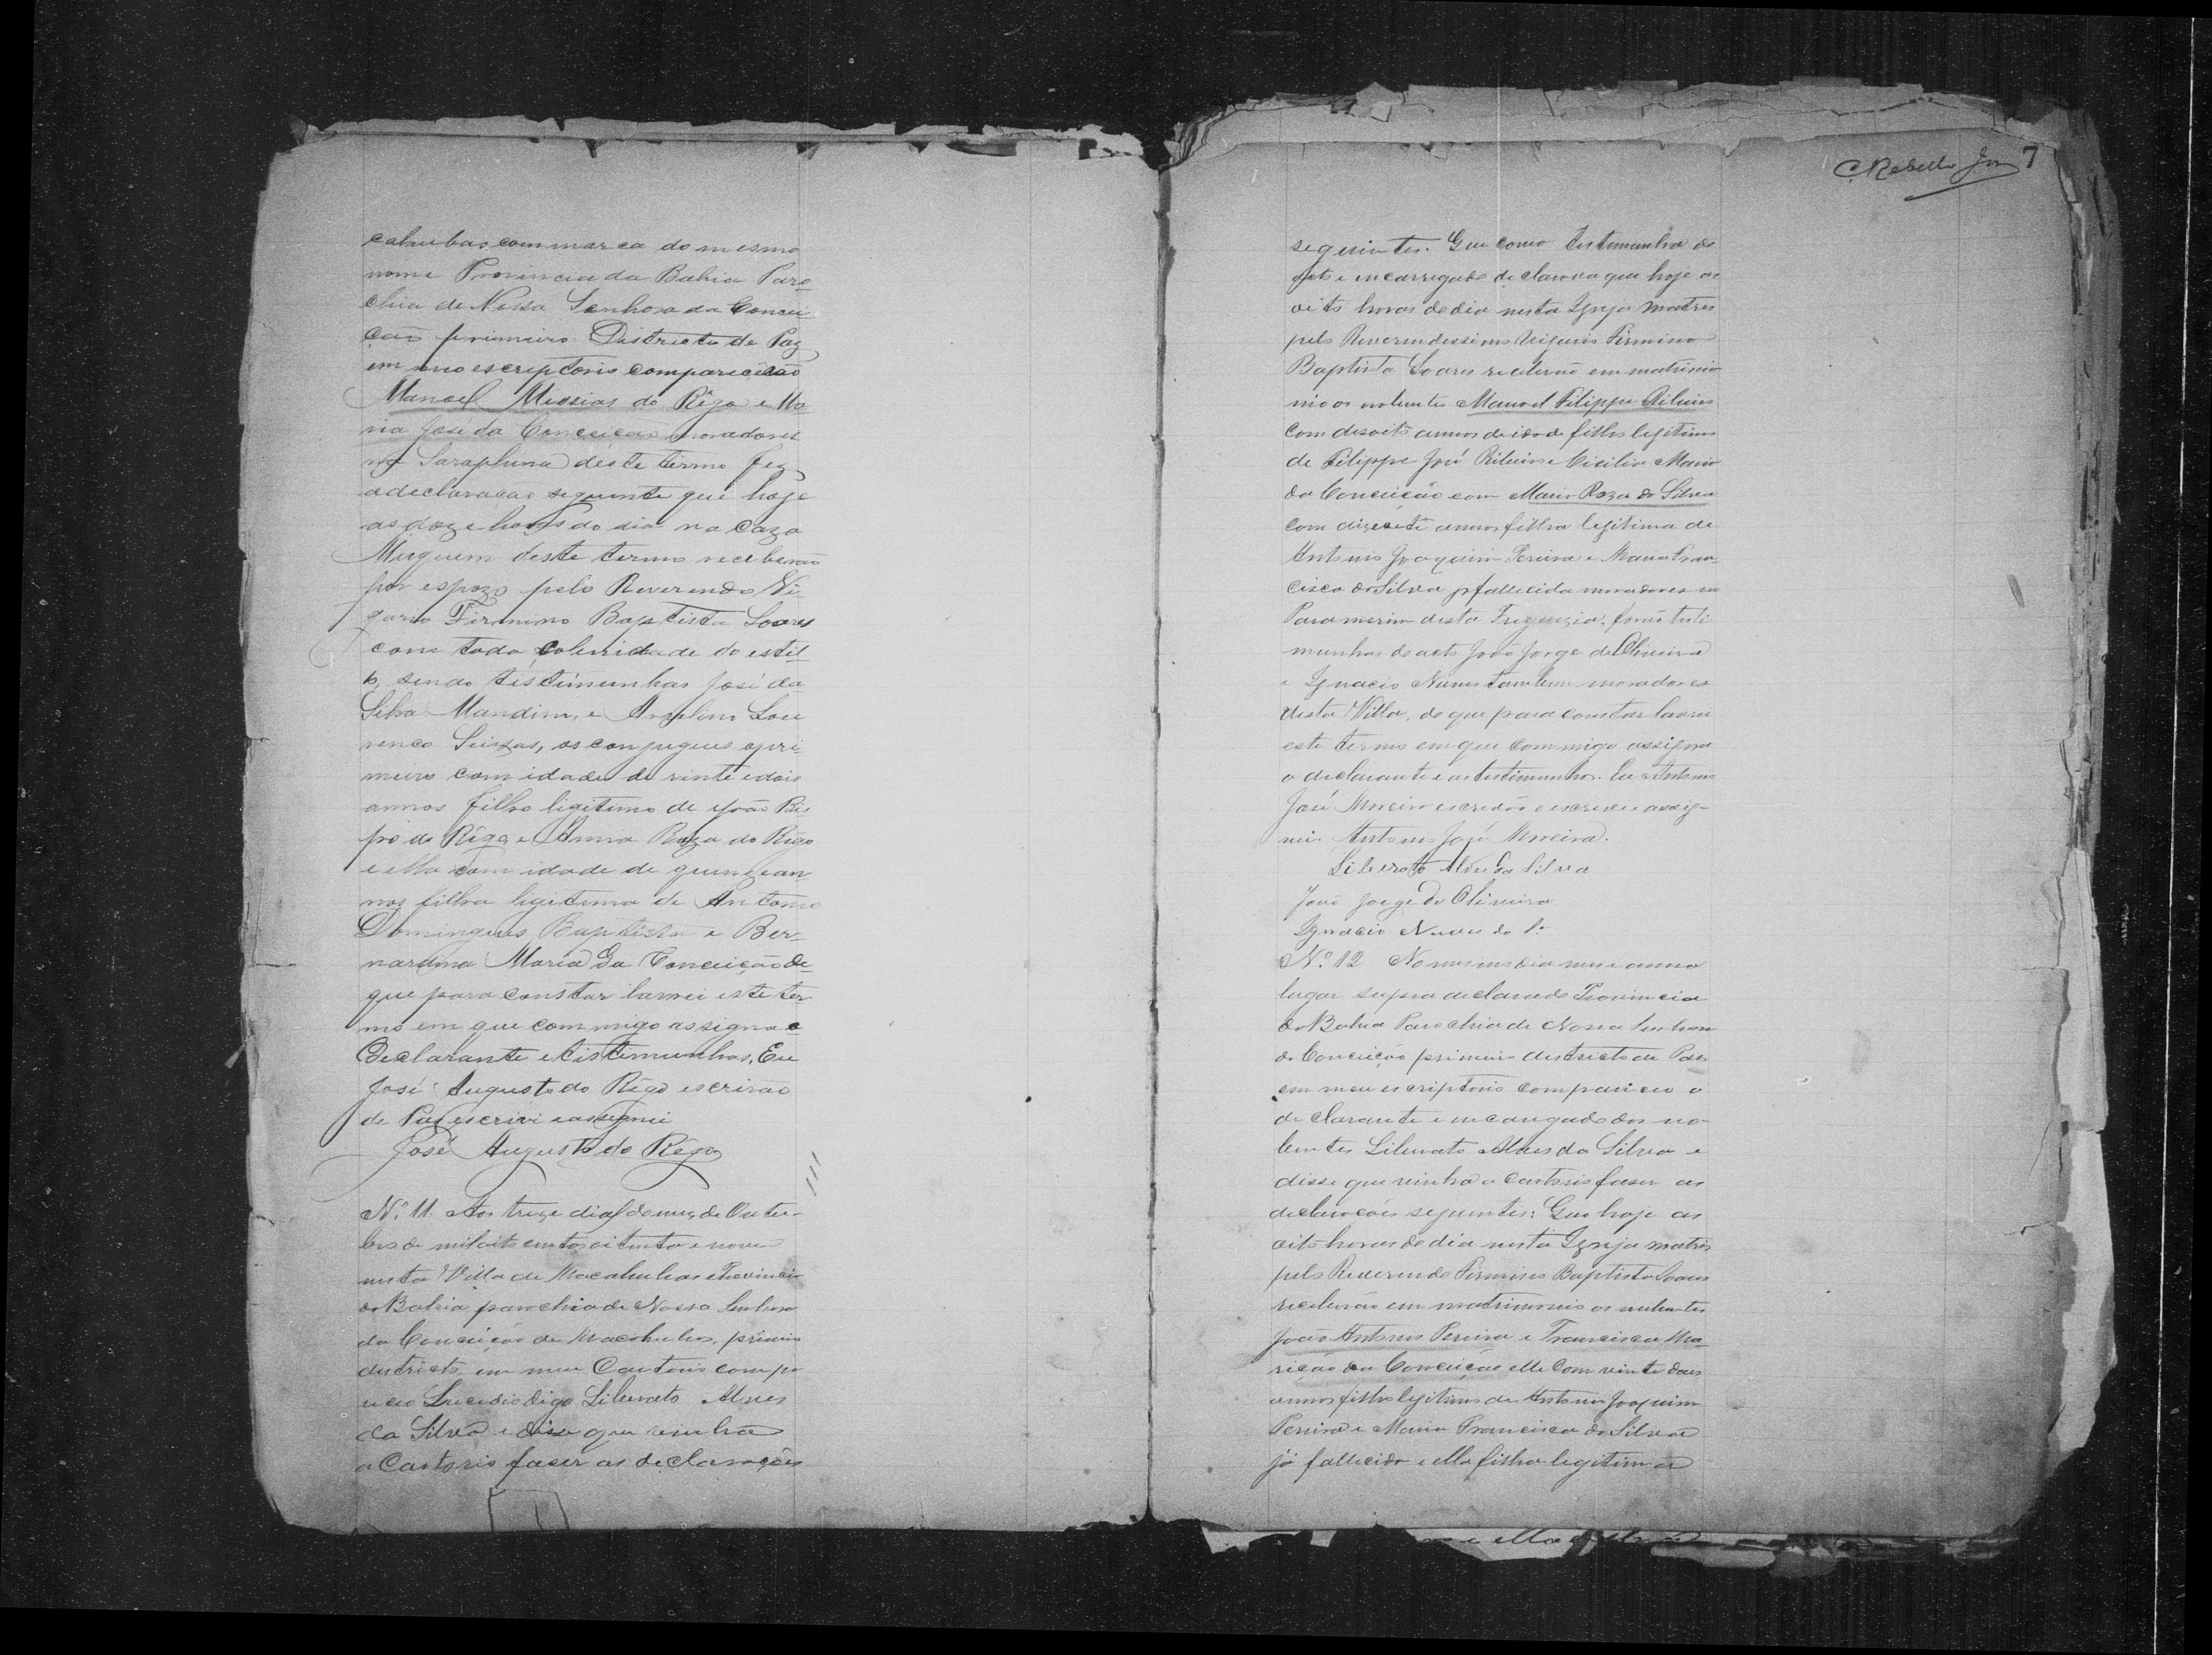 cahubas commarca do mesmo
nome Provincia da Bahia Paro-
chia de Nossa Senhora da Concei
ção primeiro Districto de Paz
em meo escriptorio comparecêrão
Manoel Messias do Rêgo e Ma-
ria José da Conceição moradores
na Saraphina deste termo fez
a declaração seguinte que hoje
as doze horas do dia na Caza
Muquem deste termo receberão
por espozo pelo Reverendo Vi-
gario Firmino Baptista Soares
com toda solenidade do estil-
lo, sendo testimunhas José da
Silva Mandim, e Angelino Lou
renco Seixas, os conjugues o pri-
meiro com idade de vinte e dois
annos filho ligitimo de João Bis
po do Rêgo e Anna Roza do Rêgo
e ella com idade de quinze an
nos filha ligitima de Antonio
Domingues Baptista e Ber-
nardina Maria da Conceição de
que para constar lavrei este ter
mo em que commigo assigna o
Declarante e testimunhas, Eu
José Augusto do Rêgo escrivão
de Paz escrivi e assignei
José Augusto do Rêgo
Nº 11. Aos treze dias do mez de Outu-
bro de mil oito centos oitenta e nove
nesta Villa de Macahubas e Provincia
da Bahia parochia de Nossa Senhora
da Conceição de Macahubas, primeiro
destricto em meu Cartorio compa
receo Lucidio digo Liberato Alves
da Silva e disse que vinha
a Cartorio faser as declarações
C. Rebello Jor 7
seguintes. Que como testimunha do
acto e encarregado declarava que hoje as
oito horas do dia nesta Igreja Matris
pelo Reverendissimo Vigario Firmino
Baptista Soares receberão em matrimo
nio os nobentes Manoel Filippe Ribeiro
com desoito annos de idade filho legitimo
de Filippe José Ribeiro e Cicilia Maria
da Conceição com Maria Roza da Silva
com dizesete annos filha legitima de
Antonio Joaquim Pereira e Maria Fran-
cisca da Silva ja fallecida moradores no
Paramerim desta Freguezia: forão testi
munhas do acto João Jorge de Oliveira
e Ignacio Nunes tambem moradores
desta Villa, do que para constar lavrei
este termo em que commigo assigna
o declarante e as testimunhas. Eu Antonio
José Moreira escrivão o escrevi e assig-
nei. Antonio José Moreira.
Liberato Alves da Silva
João Jorge de Oliveira
Ignacio Nunes da Sª
Nº 12 No mesmo dia mes e anno
lugar supra declarado Provincia
da Bahia Parochia de Nossa Senhora
da Conceição primeiro destricto de Pas
em meu escriptorio compareceo o
declarante e encarregado dos no-
bentes Liberato Alves da Silva e
disse que vinha a Cartorio faser as
declarações seguintes: Que hoje as
oito horas do dia nesta Igreja matris
pelo Reverendo Firmino Baptista Soares
receberão em matrimonio os nubentes
João Antonio Pereira e Francisca Ma-
ria da Conceição elle com vinte dous
annos filho legitimo de Antonio Joaquim
Pereira e Maria Francisca da Silva
já fallecida e ella filha legitima